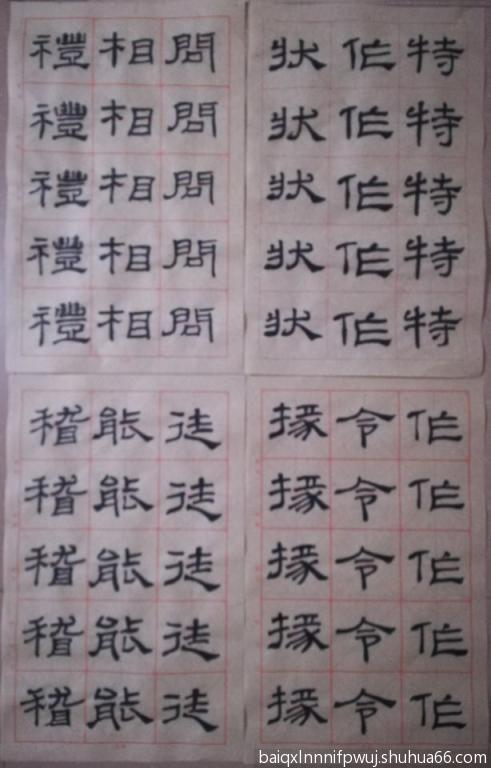 特特特特特
作作作作作
狀狀狀狀狀
問問問問問
相相相相相
禮禮禮禮禮
作作作作作
令令令令令
掾掾掾掾掾
徒徒徒徒徒
能能能能能
稽稽稽稽稽
baiqxlnnnifpwuj.shuhua66.com